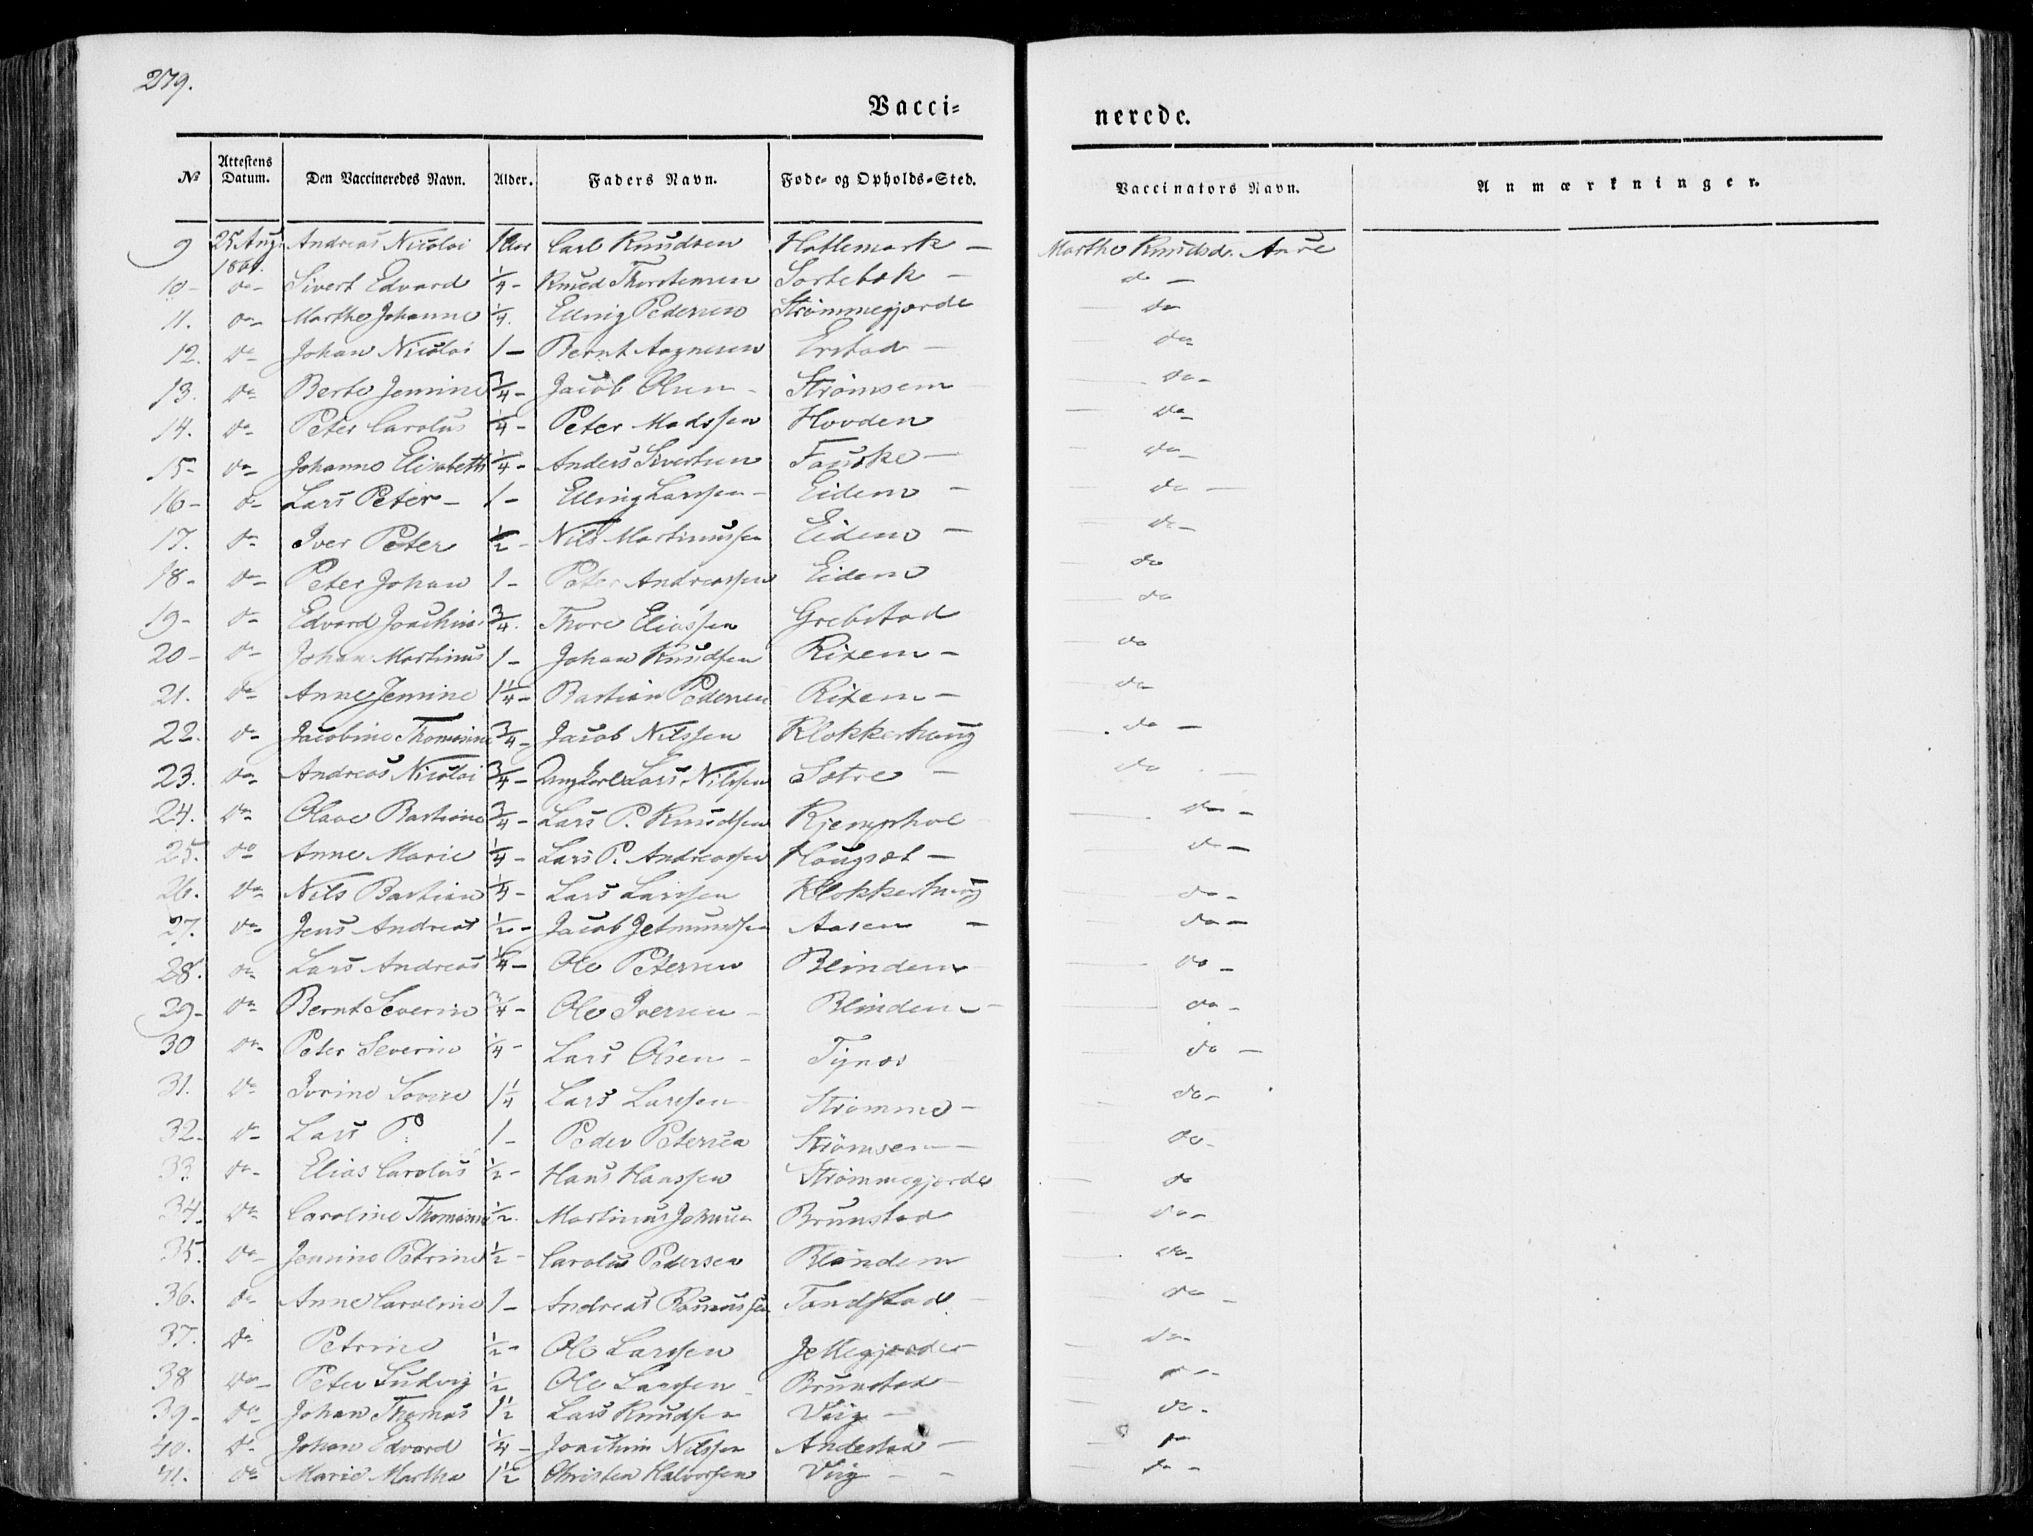 279.
Vacci=
nerede.
No Attestens Datum. Den Vaccineredes Navn. Alder. Faders Navn. Føde- og Opholds-Sted. Vaccinators Navn. Anmærkninger.
9 25 Aug. 1861. Andreas Nicolai 1 Aar Carl Knudsen Hatlemark - Marthe Knudsd. Aure
10- do- Sivert Edvard 1/4- Knud Thorstensen Sortebek - do -
11. do- Marthe Johanne 1/4. Elling Pedersen Strømmegjærde do
12. do Johan Nicolai 1- Bernt Aagnesen Erstad - do-
13. do Berte Jemine 3/4- Jacob Olsen - Strømsem do-
14. do- Peter Carolus 1/4- Peter Madssen Hovden do-
15- do- Johanne Elisabeth 1/4- Anders Sivertsen Fauske - do-
16- do- Lars Peter- 1- Elling Larssen- Eidem - do -
17. do- Iver Peter 1/2- Nils Martinussen Eidem - do-
18- do- Peter Johan 1- Peter Andreassen Eidem do
19- do- Edvard Joachim 3/4. Thore Eliassen Grebstad do
20- do- Johan Martinus 1- Johan Knudsen Rixem- do
21. do- Anne Jemine 1 1/4- Bastian Pedersen Rixem- do-
22. do- Jacobine Thomasine 3/4- Jacob Nilssen Klokkerhaug do -
23. do- Andreas Nicolai 3/4- Ungkarl Lars Nilssen Sætre - do -
24. do- Olave Bastiane 3/4- Lars P. Knudsen Kjemphol do-
25. do Anne Marie 1/4- Lars P. Andreassen Haugset- do-
26. do- Nils Bastian 1/4- Lars Larssen Klokkerhaug do-
27. do- Jens Andreas 1/2- Jacob Jetmundsen Aasen - do-
28. do- Lars Andreas 1/4- Ole Petersen Blindem do-
29- do- Bernt Severin 3/4- Ole Iversen - Blindem- do-
30 do- Peter Severin 1/4- Lars Olsen- Tynes do -
31. do- Ivrine Lovise 1 1/4 Lars Larssen- Strømme- do-
32- do- Lars P. 1- Peder Petersen Strømsem- do-
33. do- Elias Carolus 1/2- Hans Hanssen Strømmegjerde do
34. do- Caroline Thomasine 1/2. Martinus Johnsen Brunstad do-
35. do- Jemine Petrine 1/2- Carolus Pedersen Blindem do-
36. do- Anne Caroline 1- Andreas Rasmussen Tandstad- do -
37. do Petrine 1/2- Ole Larssen Jettegjerde- do-
38 do- Peter Ludvig 1/2 Ole Larssen- Brunstad- do-
39- do- Johan Thomas 1 1/2 Lars Knudsen Viig - do-
40. do- Johan Edvard 1/4- Joachim Nilssen Andestad- do
41. do Marie Martha 1 1/2 Christen Halvorsen Viig - - do-